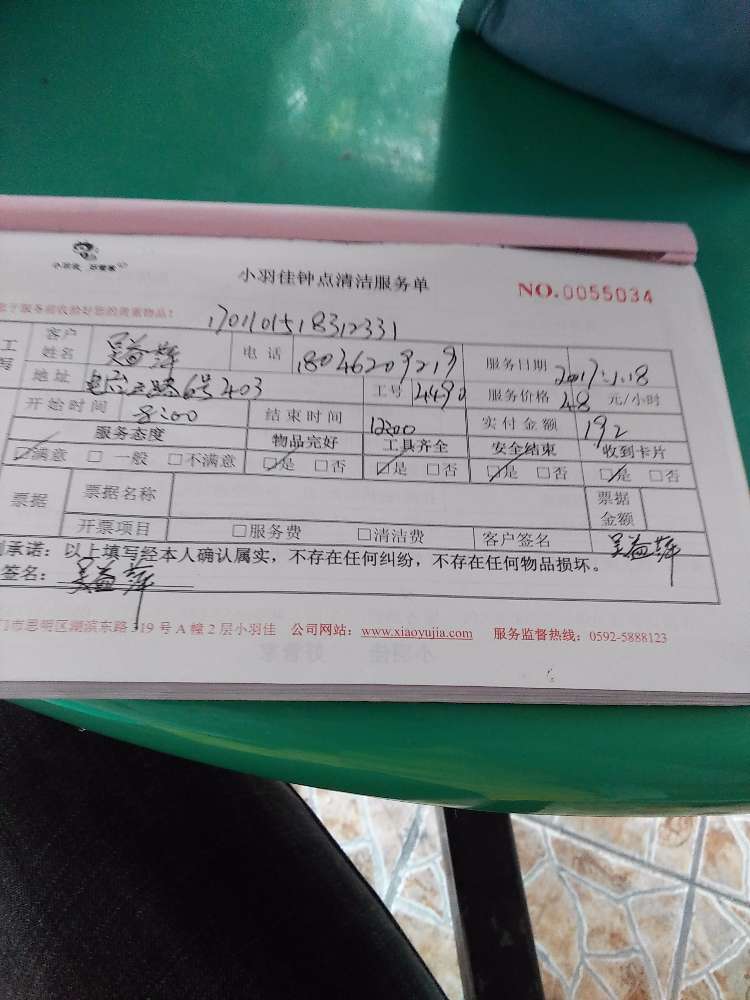 小羽佳 好管家
小羽佳钟点清洁服务单
NO.0055034
于服务前收拾好您的贵重物品!
1701101518312331
工 客户姓名 吴益萍 电话 18046209219 服务日期 2017.1.18
写 地址 6号403 工号 4490 服务价格 48 元/小时
开始时间 8:00 结束时间 12:00 实付金额 192
服务态度 物品完好 工具齐全 安全结束 收到卡片
☑满意 □一般 □不满意 ☑是 □否 ☑是 □否 ☑是 □否 ☑是 □否
票据 票据名称 票据金额
开票项目 □服务费 □清洁费 客户签名 吴益萍
承诺：以上填写经本人确认属实，不存在任何纠纷，不存在任何物品损坏。
签名： 吴益萍
门市思明区湖滨东路319号A幢2层小羽佳 公司网站：www.xiaoyujia.com 服务监督热线：0592-5888123